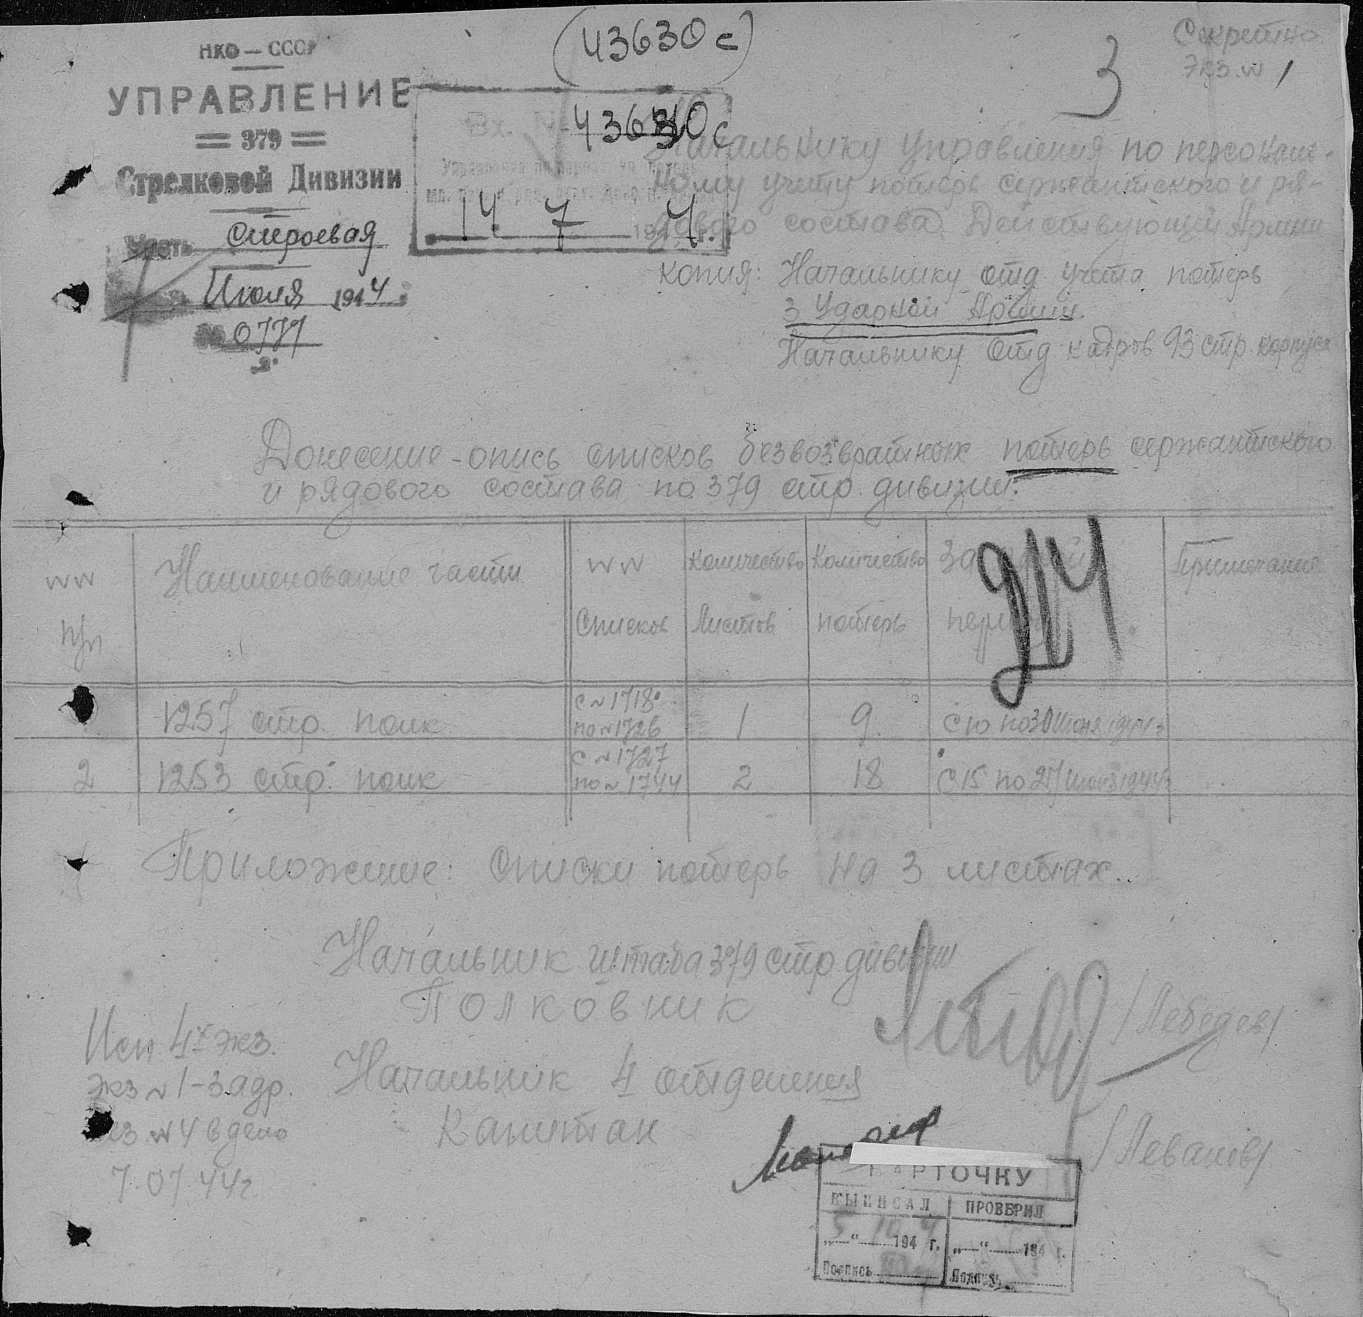 (43630с)
Секретно
Экз. № 1
3
НКО — СССР
УПРАВЛЕНИЕ
379
Стрелковой Дивизии
Часть Строевая
Июля 1944
№ 0777
Вх. № 43630с
14 7 194 4 г.
Начальнику Управления по персональ-
ному учету потерь сержантского и ря-
дового состава Действующей Армии
Копия: Начальнику отд. учета потерь
3 Ударной Армии
Начальнику отд. кадров 93 стр. корпуса
Донесение-опись списков безвозвратных потерь сержантского
и рядового состава по 379 стр. дивизии.
№№ п/п Наименование части №№ Списков Количество Листов Количество потерь За период Примечание
1257 стр. полк с №1718 по №1726 1 9 с 10 по 30 июня 1944 г.
2 1253 стр. полк с №1727 по №1744 2 18 с 15 по 1944 г.
Приложение: Списки потерь на 3 листах.
Начальник штаба 379 стр дивизии
Полковник /Лебедев/
Начальник 4 отделения
Капитан /Леванов/
Исп. 4х экз.
экз №1-3 адр.
экз №4 в дело
7.07.44г.
КАРТОЧКУ
ВЫПИСАЛ ПРОВЕРИЛ
5 10 194 4 г. „—“ 194 г.
Подпись Подпись